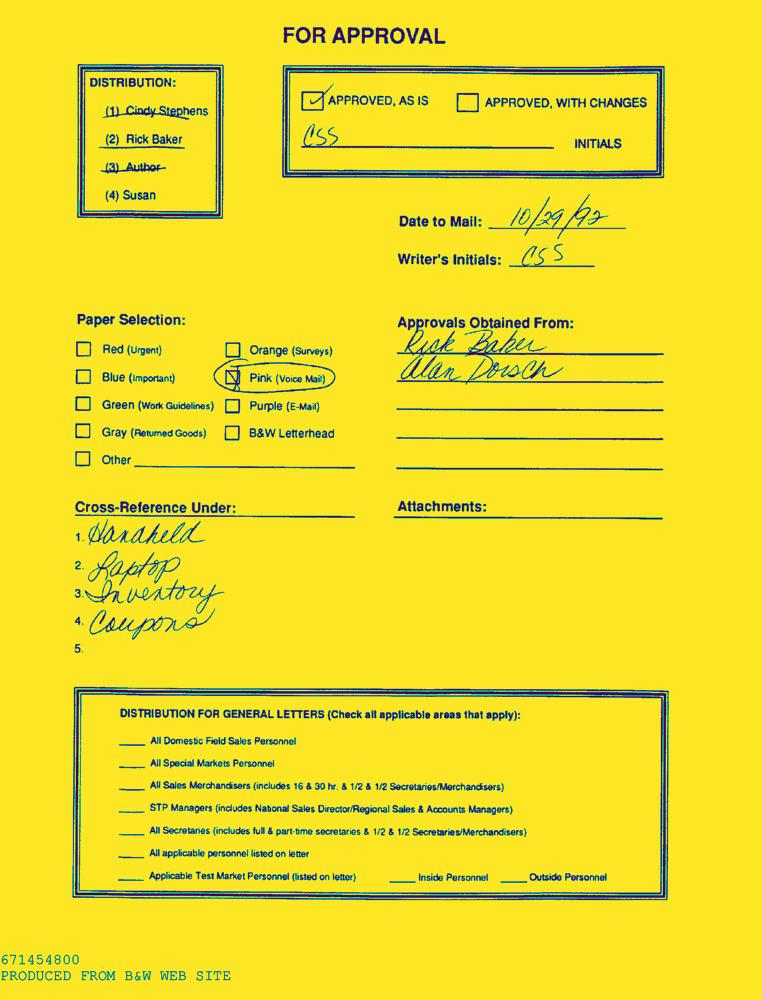 FOR APPROVAL
DISTRIBUTION:
(1) Cindy Stephens
(2) Rick Baker
(3) Author
(4) Susan
APPROVED, AS IS
APPROVED, WITH CHANGES
CSS
INITIALS
Date to Mail: 10/29/92
Writer's Initials: CSS
Paper Selection:
Red (Urgent)
Orange (Surveys)
Blue (Important)
Pink (Voice Mail)
Green (Work Guidelines)
Purple (E-Mail)
Gray (Returned Goods)
B&W Letterhead
Other
Approvals Obtained From:
Rick Baker
Alan Dorsch
Cross-Reference Under:
1. Handheld
2. Laptop
3. Inventory
4. Coupons
5.
Attachments:
DISTRIBUTION FOR GENERAL LETTERS (Check all applicable areas that apply):
All Domestic Field Sales Personnel
All Special Markets Personnel
All Sales Merchandisers (includes 16 & 30 hr. & 1/2 & 1/2 Secretaries/Merchandisers)
STP Managers (includes National Sales Director/Regional Sales & Accounts Managers)
All Secretaries (includes full & part-time secretaries & 1/2 & 1/2 Secretaries/Merchandisers)
All applicable personnel listed on letter
Applicable Test Market Personnel (listed on letter) Inside Personnel Outside Personnel
671454800
PRODUCED FROM B&W WEB SITE